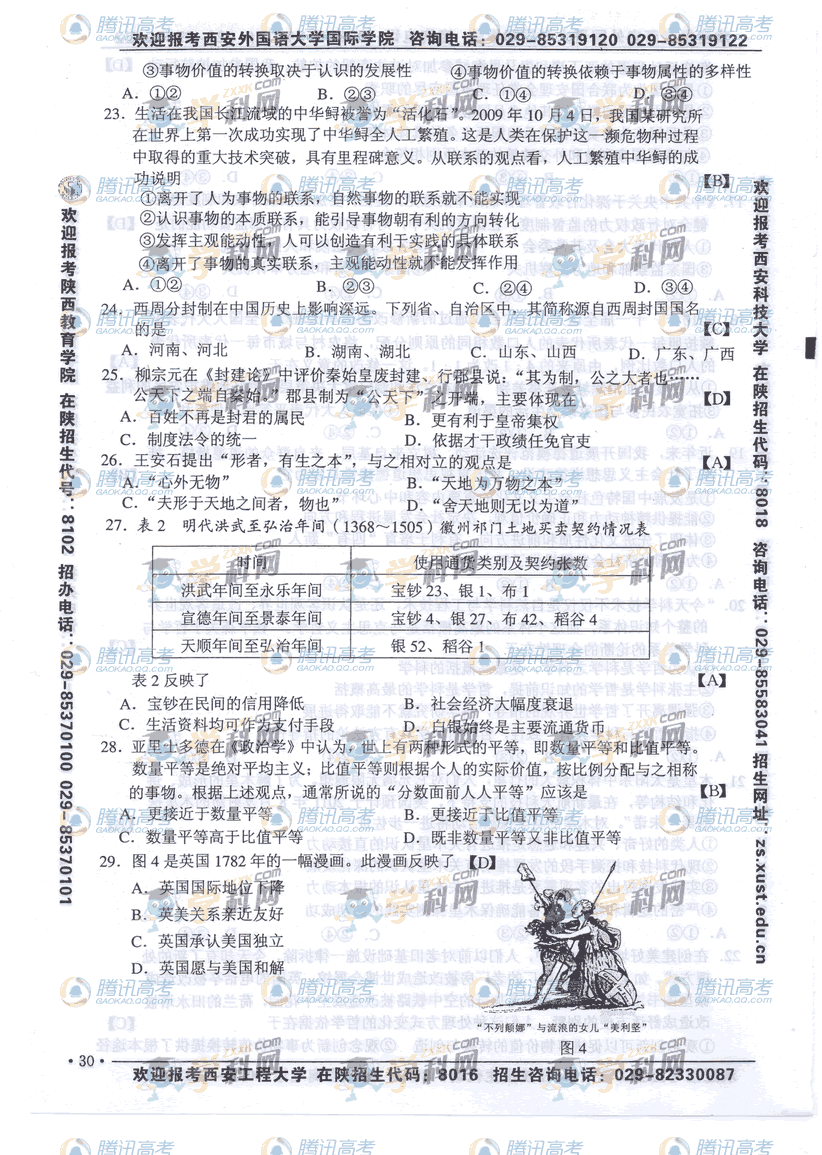 欢迎报考西安外国语大学国际学院 咨询电话：029-85319120 029-85319122
③事物价值的转换取决于认识的发展性 ④事物价值的转换依赖于事物属性的多样性
A．①② B．②③ C．①④ D．③④
23．生活在我国长江流域的中华鲟被誉为“活化石”。2009 年 10 月 4 日，我国某研究所
在世界上第一次成功实现了中华鲟全人工繁殖。这是人类在保护这一濒危物种过程
中取得的重大技术突破，具有里程碑意义。从联系的观点看，人工繁殖中华鲟的成
功说明 【B】
①离开了人为事物的联系，自然事物的联系就不能实现
②认识事物的本质联系，能引导事物朝有利的方向转化
③发挥主观能动性，人可以创造有利于实践的具体联系
④离开了事物的真实联系，主观能动性就不能发挥作用
A．①② B．②③ C．②④ D．③④
24．西周分封制在中国历史上影响深远。下列省、自治区中，其简称源自西周封国国名
的是 【C】
A．河南、河北 B．湖南、湖北 C．山东、山西 D．广东、广西
25．柳宗元在《封建论》中评价秦始皇废封建、行郡县说：“其为制，公之大者也……
公天下之端自秦始。”郡县制为“公天下”之开端，主要体现在 【D】
A．百姓不再是封君的属民 B．更有利于皇帝集权
C．制度法令的统一 D．依据才干政绩任免官吏
26．王安石提出“形者，有生之本”，与之相对立的观点是 【A】
A．“心外无物” B．“天地为万物之本”
C．“夫形于天地之间者，物也” D．“舍天地则无以为道”
27．表 2 明代洪武至弘治年间（1368～1505）徽州祁门土地买卖契约情况表
时间 使用通货类别及契约张数
洪武年间至永乐年间 宝钞 23、银 1、布 1
宣德年间至景泰年间 宝钞 4、银 27、布 42、稻谷 4
天顺年间至弘治年间 银 52、稻谷 1
表 2 反映了 【A】
A．宝钞在民间的信用降低 B．社会经济大幅度衰退
C．生活资料均可作为支付手段 D．白银始终是主要流通货币
28．亚里士多德在《政治学》中认为，世上有两种形式的平等，即数量平等和比值平等。
数量平等是绝对平均主义；比值平等则根据个人的实际价值，按比例分配与之相称
的事物。根据上述观点，通常所说的“分数面前人人平等”应该是 【B】
A．更接近于数量平等 B．更接近于比值平等
C．数量平等高于比值平等 D．既非数量平等又非比值平等
29．图 4 是英国 1782 年的一幅漫画。此漫画反映了 【D】
A．英国国际地位下降
B．英美关系亲近友好
C．英国承认美国独立
D．英国愿与美国和解
“不列颠娜”与流浪的女儿“美利坚”
图 4
·30·
欢迎报考西安工程大学 在陕招生代码：8016 招生咨询电话：029-82330087
欢迎报考陕西教育学院 在陕招生代号：8102 招办电话：029-85370100 029-85370101
欢迎报考西安科技大学 在陕招生代码：8018 咨询电话：029-85583041 招生网址：zs.xust.edu.cn
腾讯高考
GAOKAO.QQ.COM
学科网
ZXXK.com